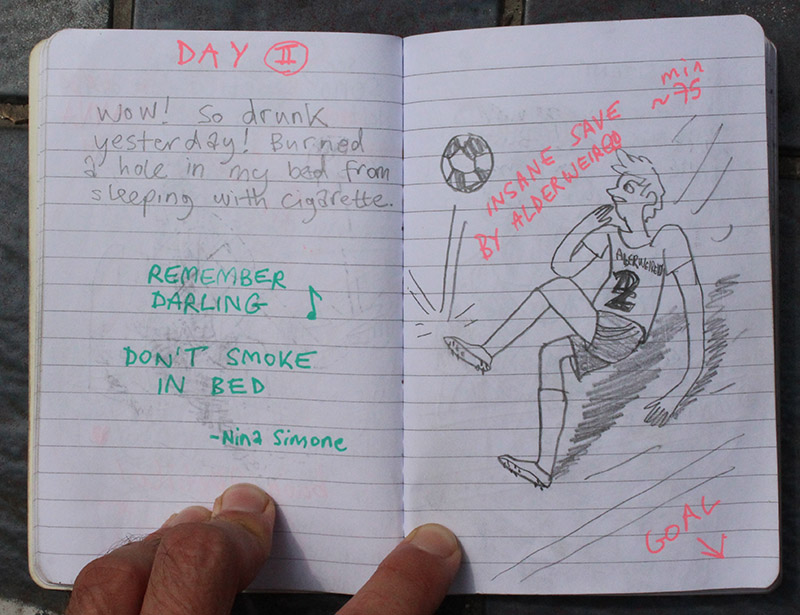 DAY II
Wow! So drunk
yesterday! Burned
a hole in my bed from
sleeping with cigarette.
REMEMBER
DARLING ♪
DON'T SMOKE
IN BED
-Nina Simone
min
~75
INSANE SAVE
BY ALDERWEIRED
ALDERWEIRED
2
GOAL
↓